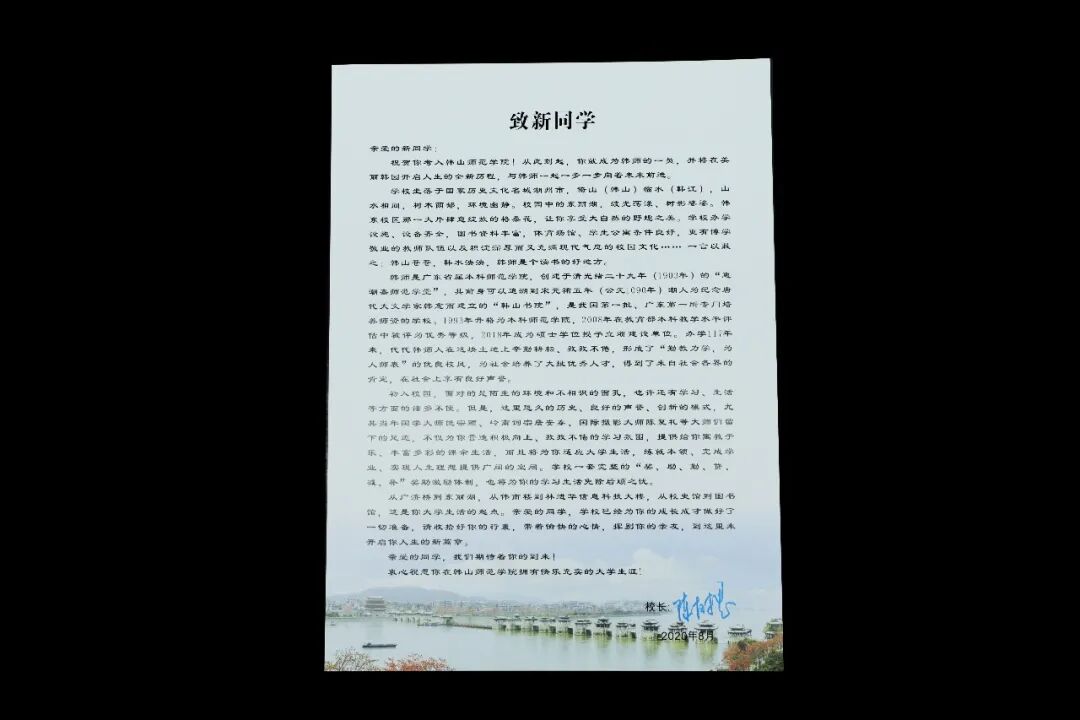 致新同学
亲爱的新同学：
祝贺你考入韩山师范学院！从此刻起，你就成为韩师的一员，并将在美
丽韩园开启人生的全新历程，与韩师一起一步一步向着未来前进。
学校坐落于国家历史文化名城潮州市，倚山（韩山）临水（韩江），山
水相间，树木茜郁，环境幽静。校园中的东丽湖，波光荡漾、树影婆娑。韩
东校区那一大片肆意绽放的格桑花，让你享受大自然的野趣之美。学校办学
设施、设备齐全，图书资料丰富，体育场馆、学生公寓条件良好，更有博学
敬业的教师队伍以及积淀深厚而又充满现代气息的校园文化……一言以蔽
之：韩山苍苍，韩水泱泱，韩师是个读书的好地方。
韩师是广东省属本科师范学院，创建于清光绪二十九年（1903年）的“惠
潮嘉师范学堂”，其前身可以追溯到宋元祐五年（公元1090年）潮人为纪念唐
代大文学家韩愈而建立的“韩山书院”，是我国第一批、广东第一所专门培
养师资的学校。1993年升格为本科师范学院，2008年在教育部本科教学水平评
估中被评为优秀等级，2018年成为硕士学位授予立项建设单位。办学117年
来，代代韩师人在这块土地上辛勤耕耘、孜孜不倦，形成了“勤教力学，为
人师表”的优良校风，为社会培养了大批优秀人才，得到了来自社会各界的
肯定，在社会上享有良好声誉。
初入校园，面对的是陌生的环境和不相识的面孔，也许还有学习、生活
等方面的诸多不便。但是，这里悠久的历史、良好的声誉、创新的模式，尤
其当年国学大师饶宗颐、岭南词宗詹安泰、国际摄影大师陈复礼等大师们留
下的足迹，不仅为你营造积极向上、孜孜不倦的学习氛围，提供给你寓教于
乐、丰富多彩的课余生活，而且将为你适应大学生活，练就本领、完成学
业、实现人生理想提供广阔的空间。学校一套完整的“奖、励、勤、贷、
减、补”奖助激励体制，也将为你的学习生活免除后顾之忧。
从广济桥到东丽湖，从伟南楼到林进华信息科技大楼，从校史馆到图书
馆，这是你大学生活的起点。亲爱的同学，学校已经为你的成长成才做好了
一切准备，请收拾好你的行囊，带着愉快的心情，挥别你的亲友，到这里来
开启你人生的新篇章。
亲爱的同学，我们期待着你的到来！
衷心祝愿你在韩山师范学院拥有快乐充实的大学生涯！
校长：
2020年8月